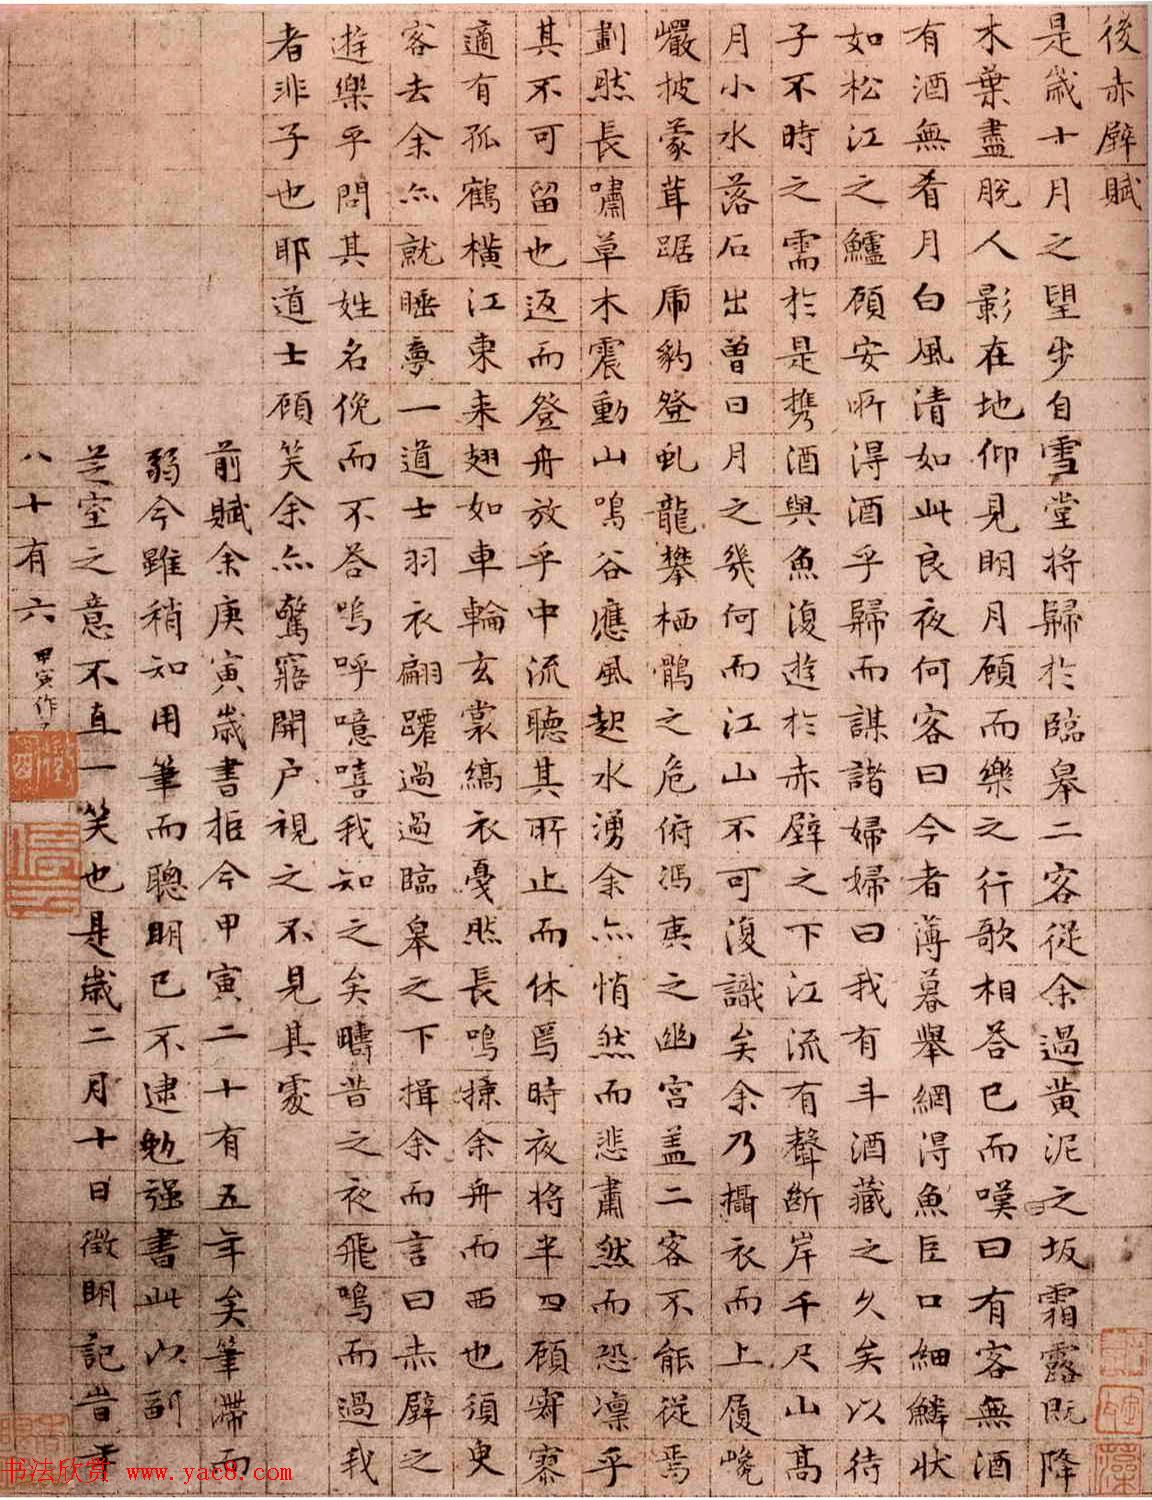 後赤壁賦
是歲十月之望步自雪堂將歸於臨皋二客從余過黃泥之坂霜露既降
木葉盡脫人影在地仰見明月顧而樂之行歌相荅已而嘆曰有客無酒
有酒無肴月白風清如此良夜何客曰今者薄暮舉網得魚巨口細鱗狀
如松江之鱸顧安所得酒乎歸而謀諸婦婦曰我有斗酒藏之久矣以待
子不時之需於是携酒與魚復遊於赤壁之下江流有聲斷岸千尺山高
月小水落石出曾日月之幾何而江山不可復識矣余乃攝衣而上履巉
巖披蒙茸踞虎豹登虬龍攀栖鶻之危俯馮夷之幽宮盖二客不能從焉
劃然長嘯草木震動山鳴谷應風起水湧余亦悄然而悲肅然而恐凛乎
其不可留也返而登舟放乎中流聽其所止而休焉時夜將半四顧寂寥
適有孤鶴橫江東來翅如車輪玄裳縞衣戛然長鳴掠余舟而西也須臾
客去余亦就睡夢一道士羽衣翩躚過過臨皋之下揖余而言曰赤壁之
遊樂乎問其姓名俛而不荅嗚呼噫嘻我知之矣疇昔之夜飛鳴而過我
者非子也耶道士顧笑余亦驚寤開户視之不見其處
前賦余庚寅歲書拒今甲寅二十有五年矣筆滯而
弱今雖稍知用筆而聰明已不逮勉强書此以副
芝室之意不直一笑也是歲二月十日徵明記旹年
八十有六
甲寅作
书法欣赏 www.yac8.com